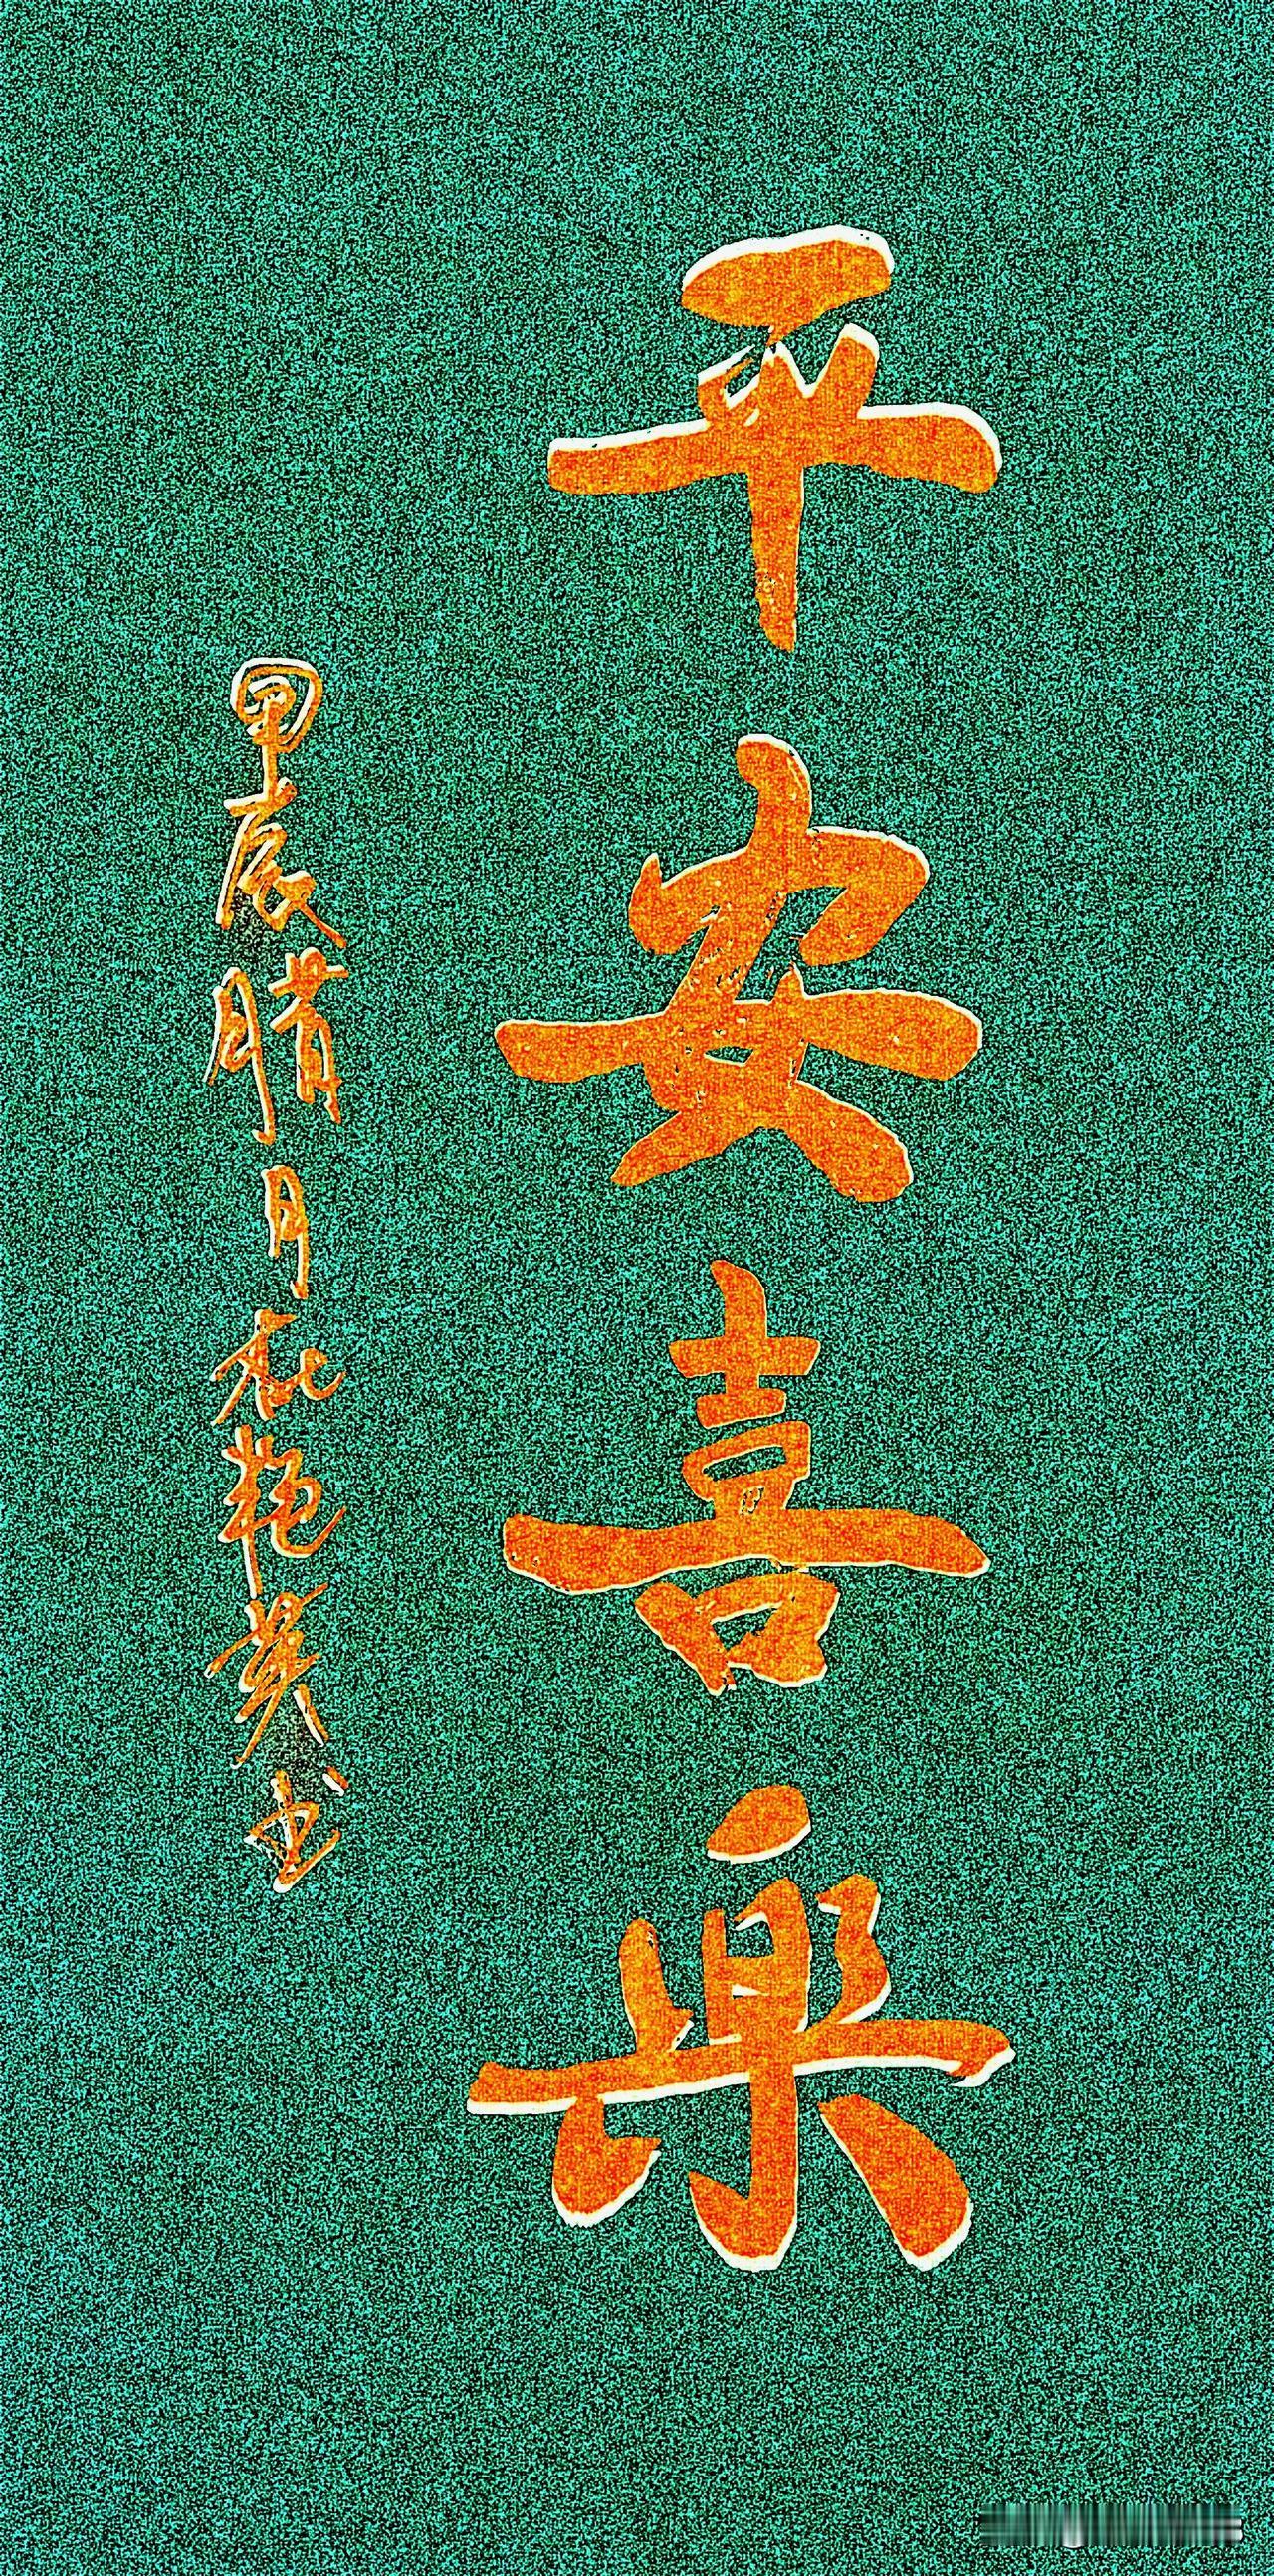 平安喜樂
甲辰腊月月杜艳英书